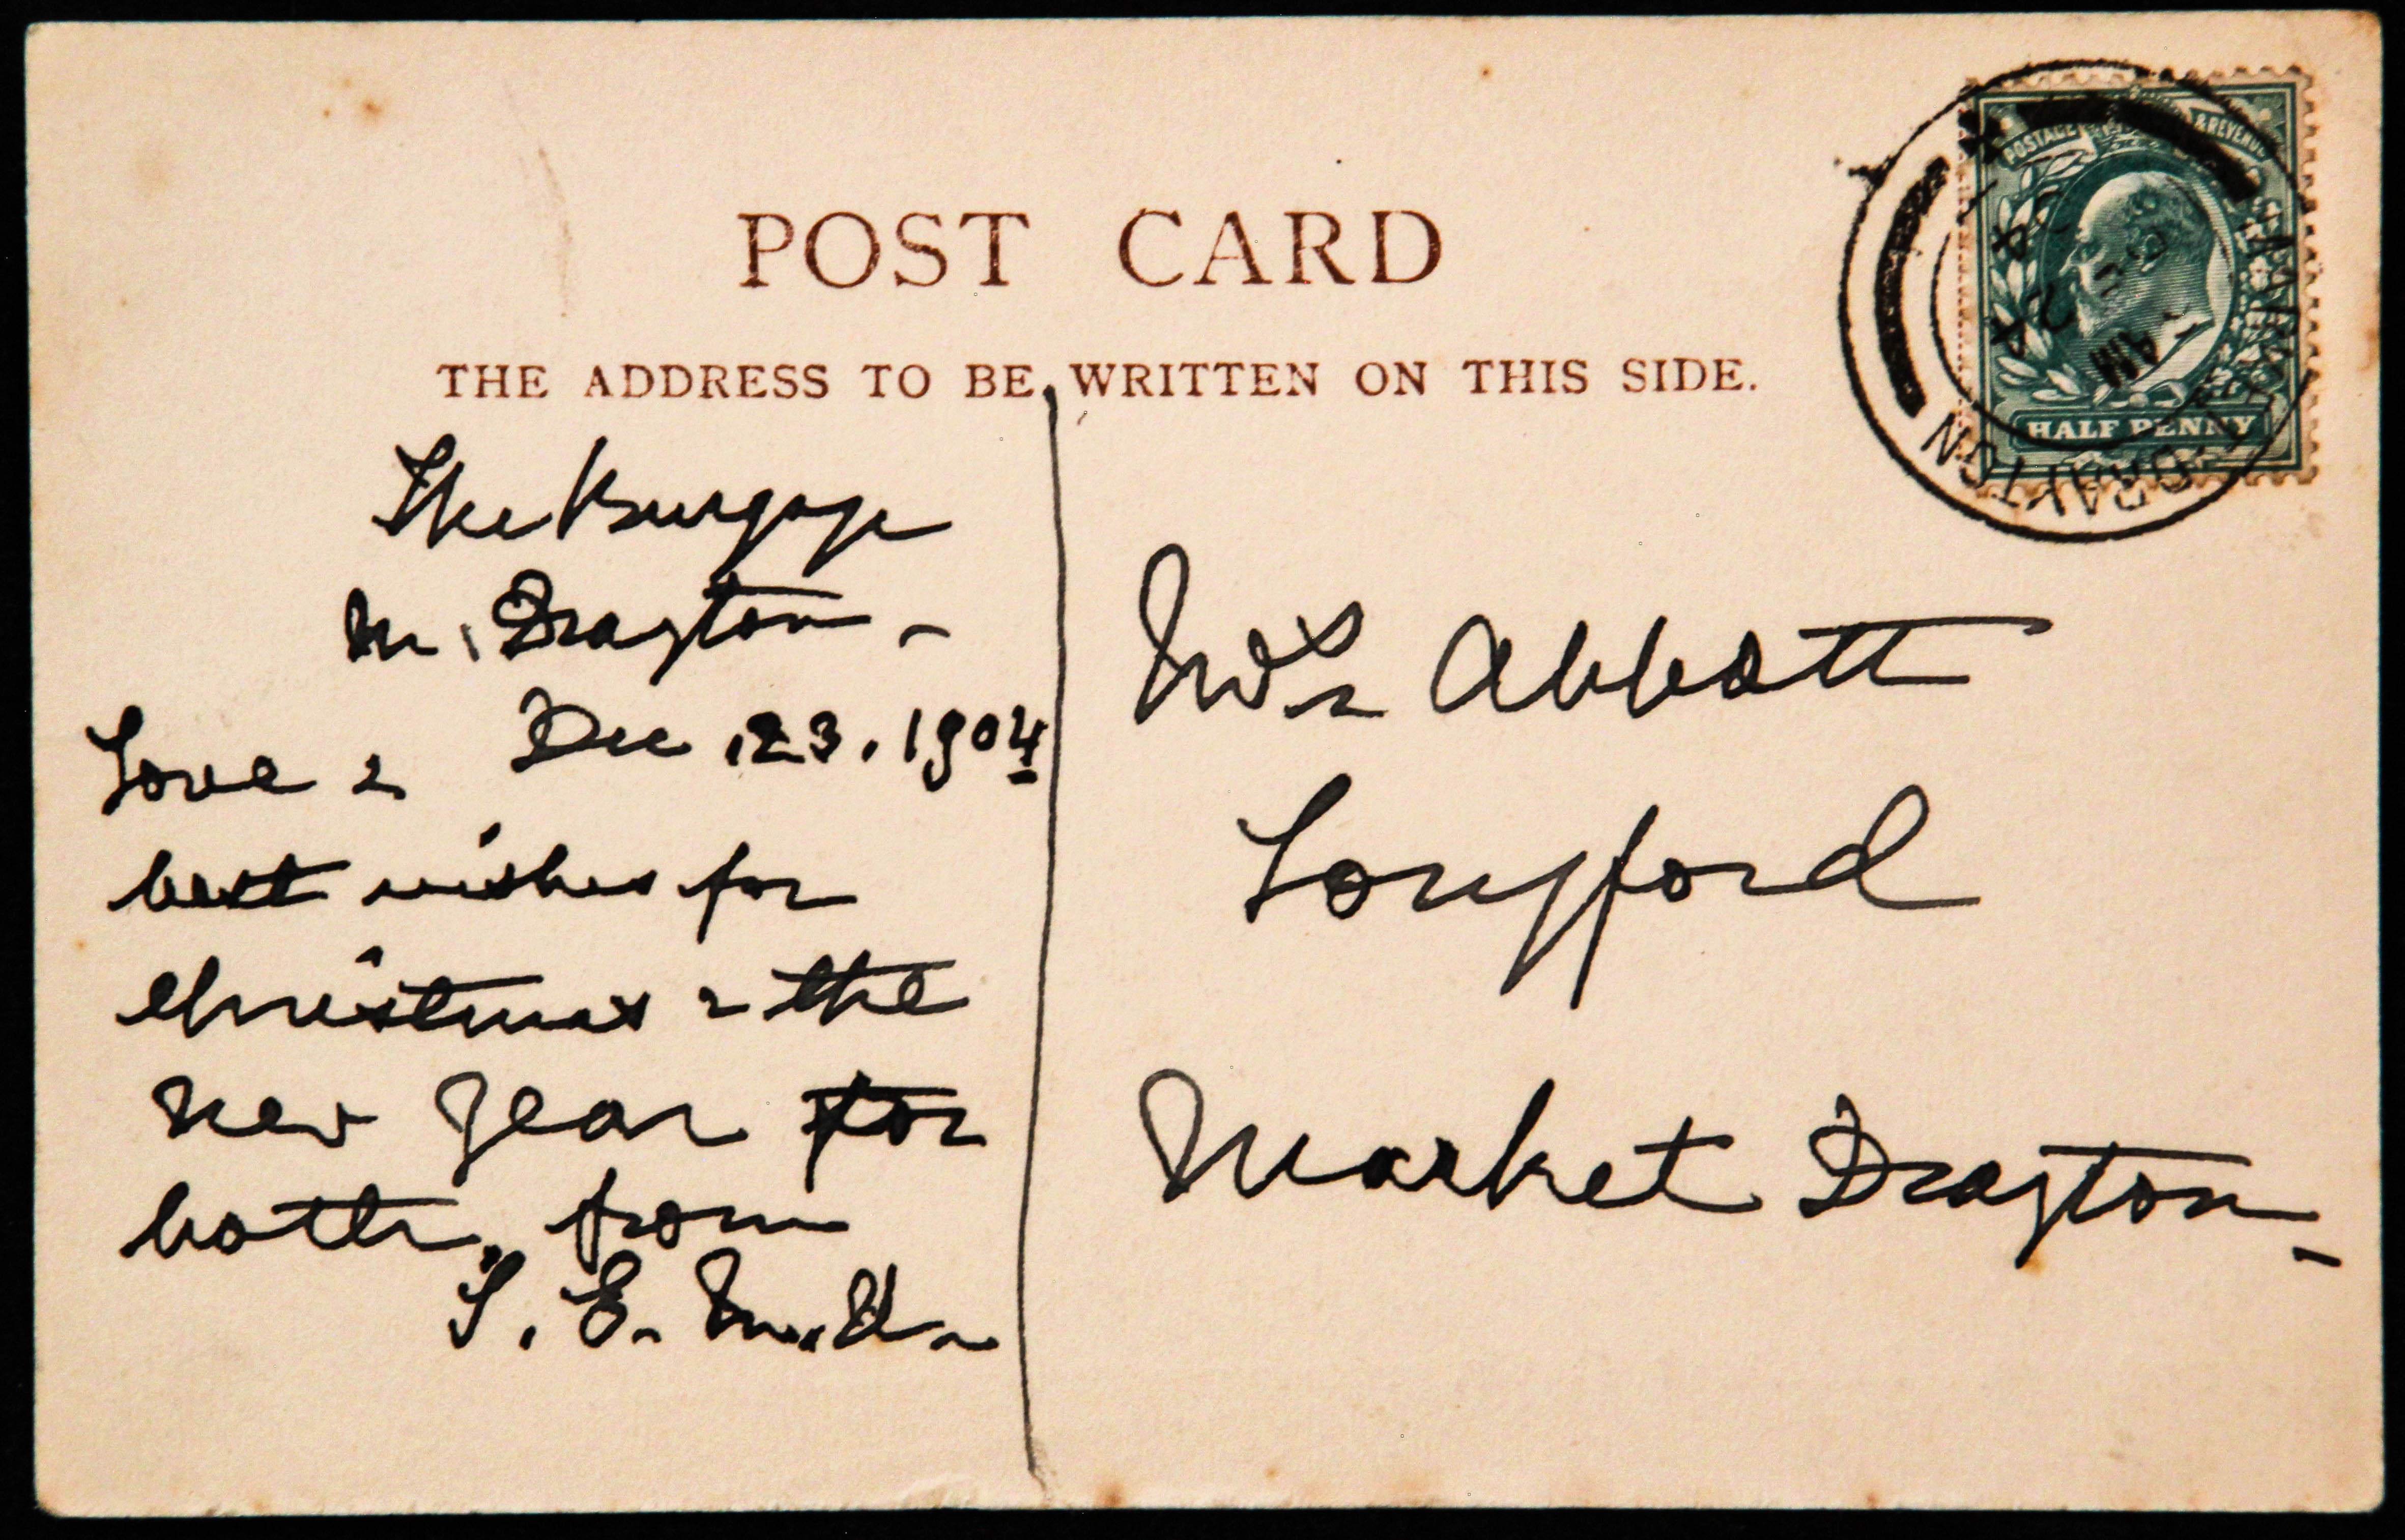 POST CARD
THE ADDRESS TO BE WRITTEN ON THIS SIDE.
POSTAGE & REVENUE
HALF PENNY
MARKET DRAYTON
AM
24
04
The Burgage
M. Drayton -
Dec. 23. 1904
Love &
best wishes for
Christmas & the
New Year for
both, from
E.
Mrs Abbott
Longford
Market Drayton